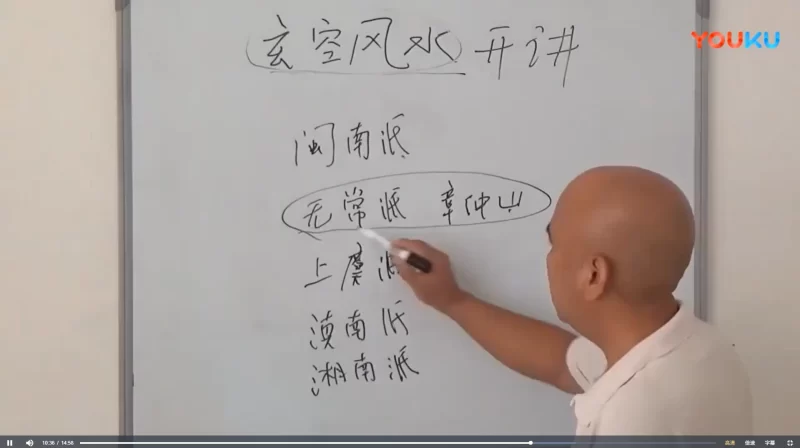 YOUKU
玄空风水 开讲
闽南派
无常派 章仲山
上虞派
滇南派
湘南派
10:36 / 14:56 高清 倍速 字幕